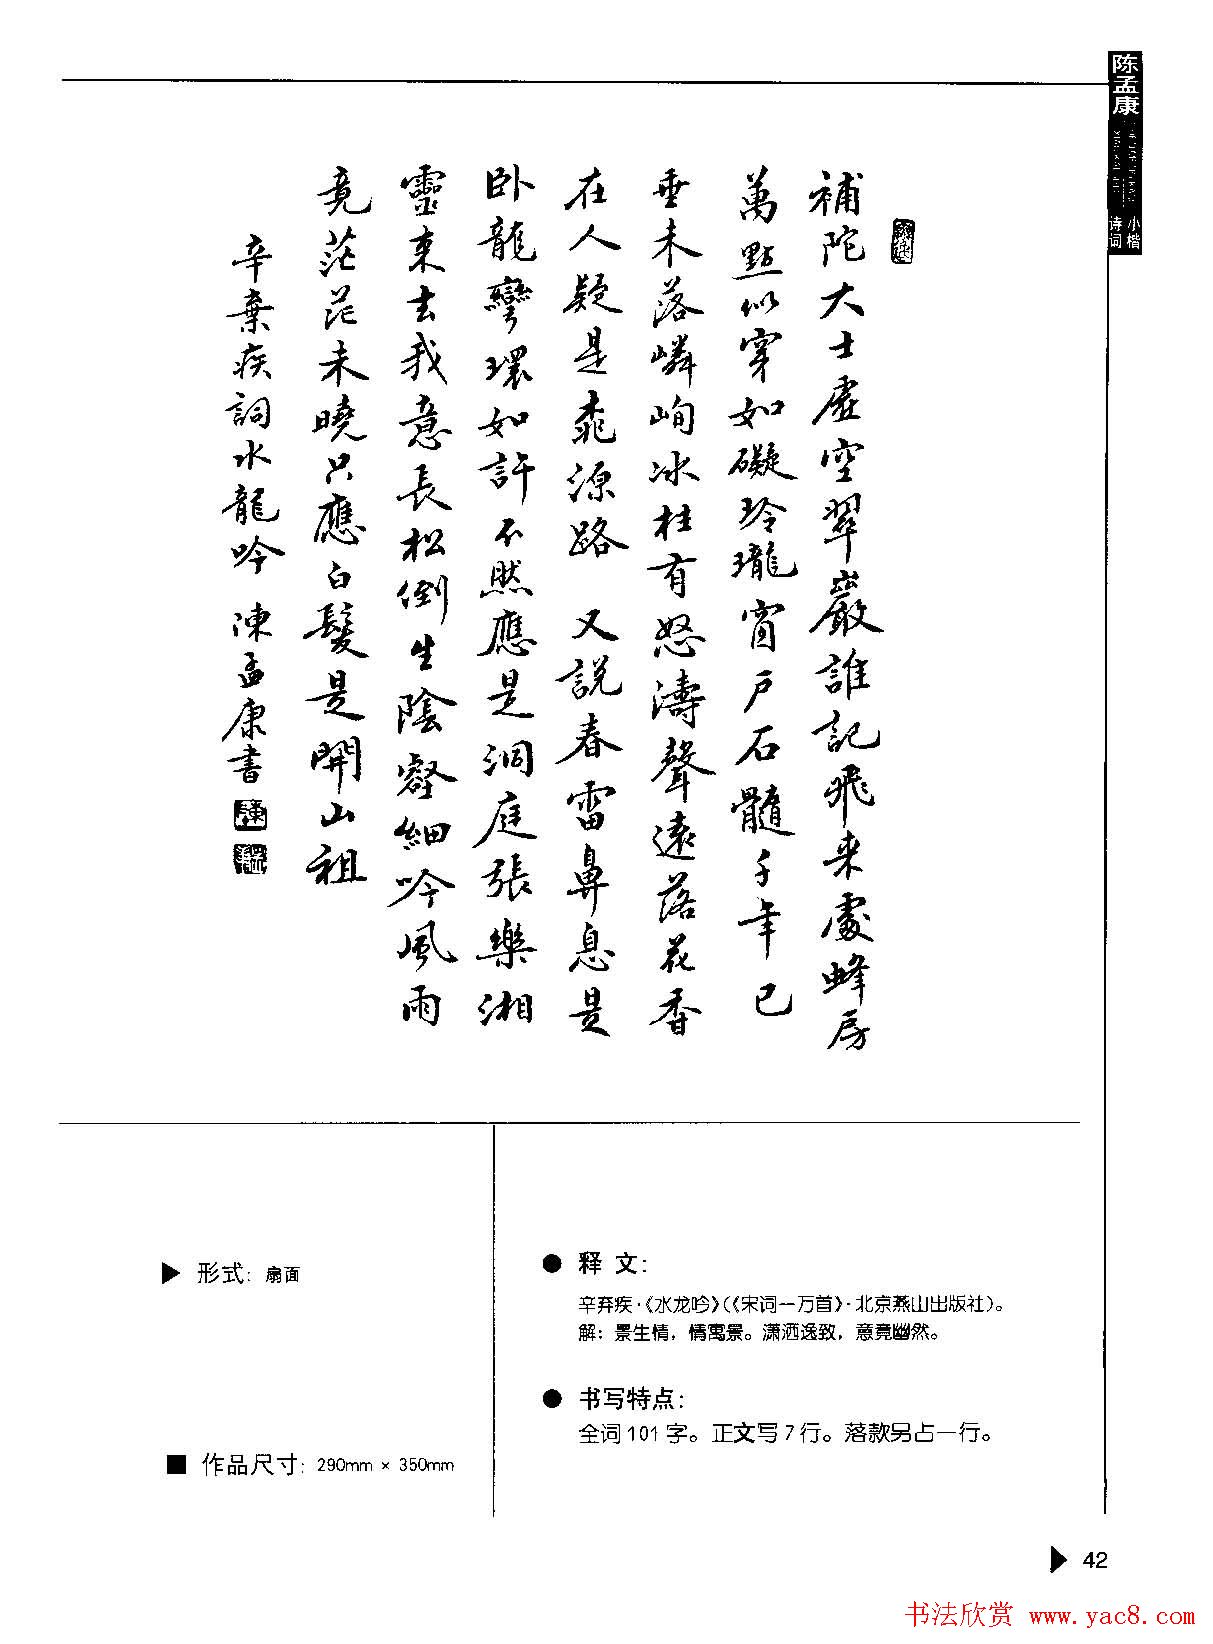 陈孟康
小楷
诗词
補陀大士虛空翠巖誰記飛来處蜂房
萬點似穿如礙玲瓏窗戶石髓千年已
垂未落嶙峋冰柱有怒濤聲遠落花香
在人疑是桃源路 又說春雷鼻息是
卧龍彎環如許不然應是洞庭張樂湘
靈来去我意長松倒生陰壑細吟風雨
竟茫茫未曉只應白髮是開山祖
辛棄疾詞水龍吟 陳孟康書
▶ 形式: 扇面
■ 作品尺寸: 290mm × 350mm
● 释 文:
辛弃疾·《水龙吟》(《宋词一万首》·北京燕山出版社)。
解: 景生情, 情寓景。潇洒逸致, 意竟幽然。
● 书写特点:
全词101字。正文写7行。落款另占一行。
▶ 42
书法欣赏 www.yac8.com